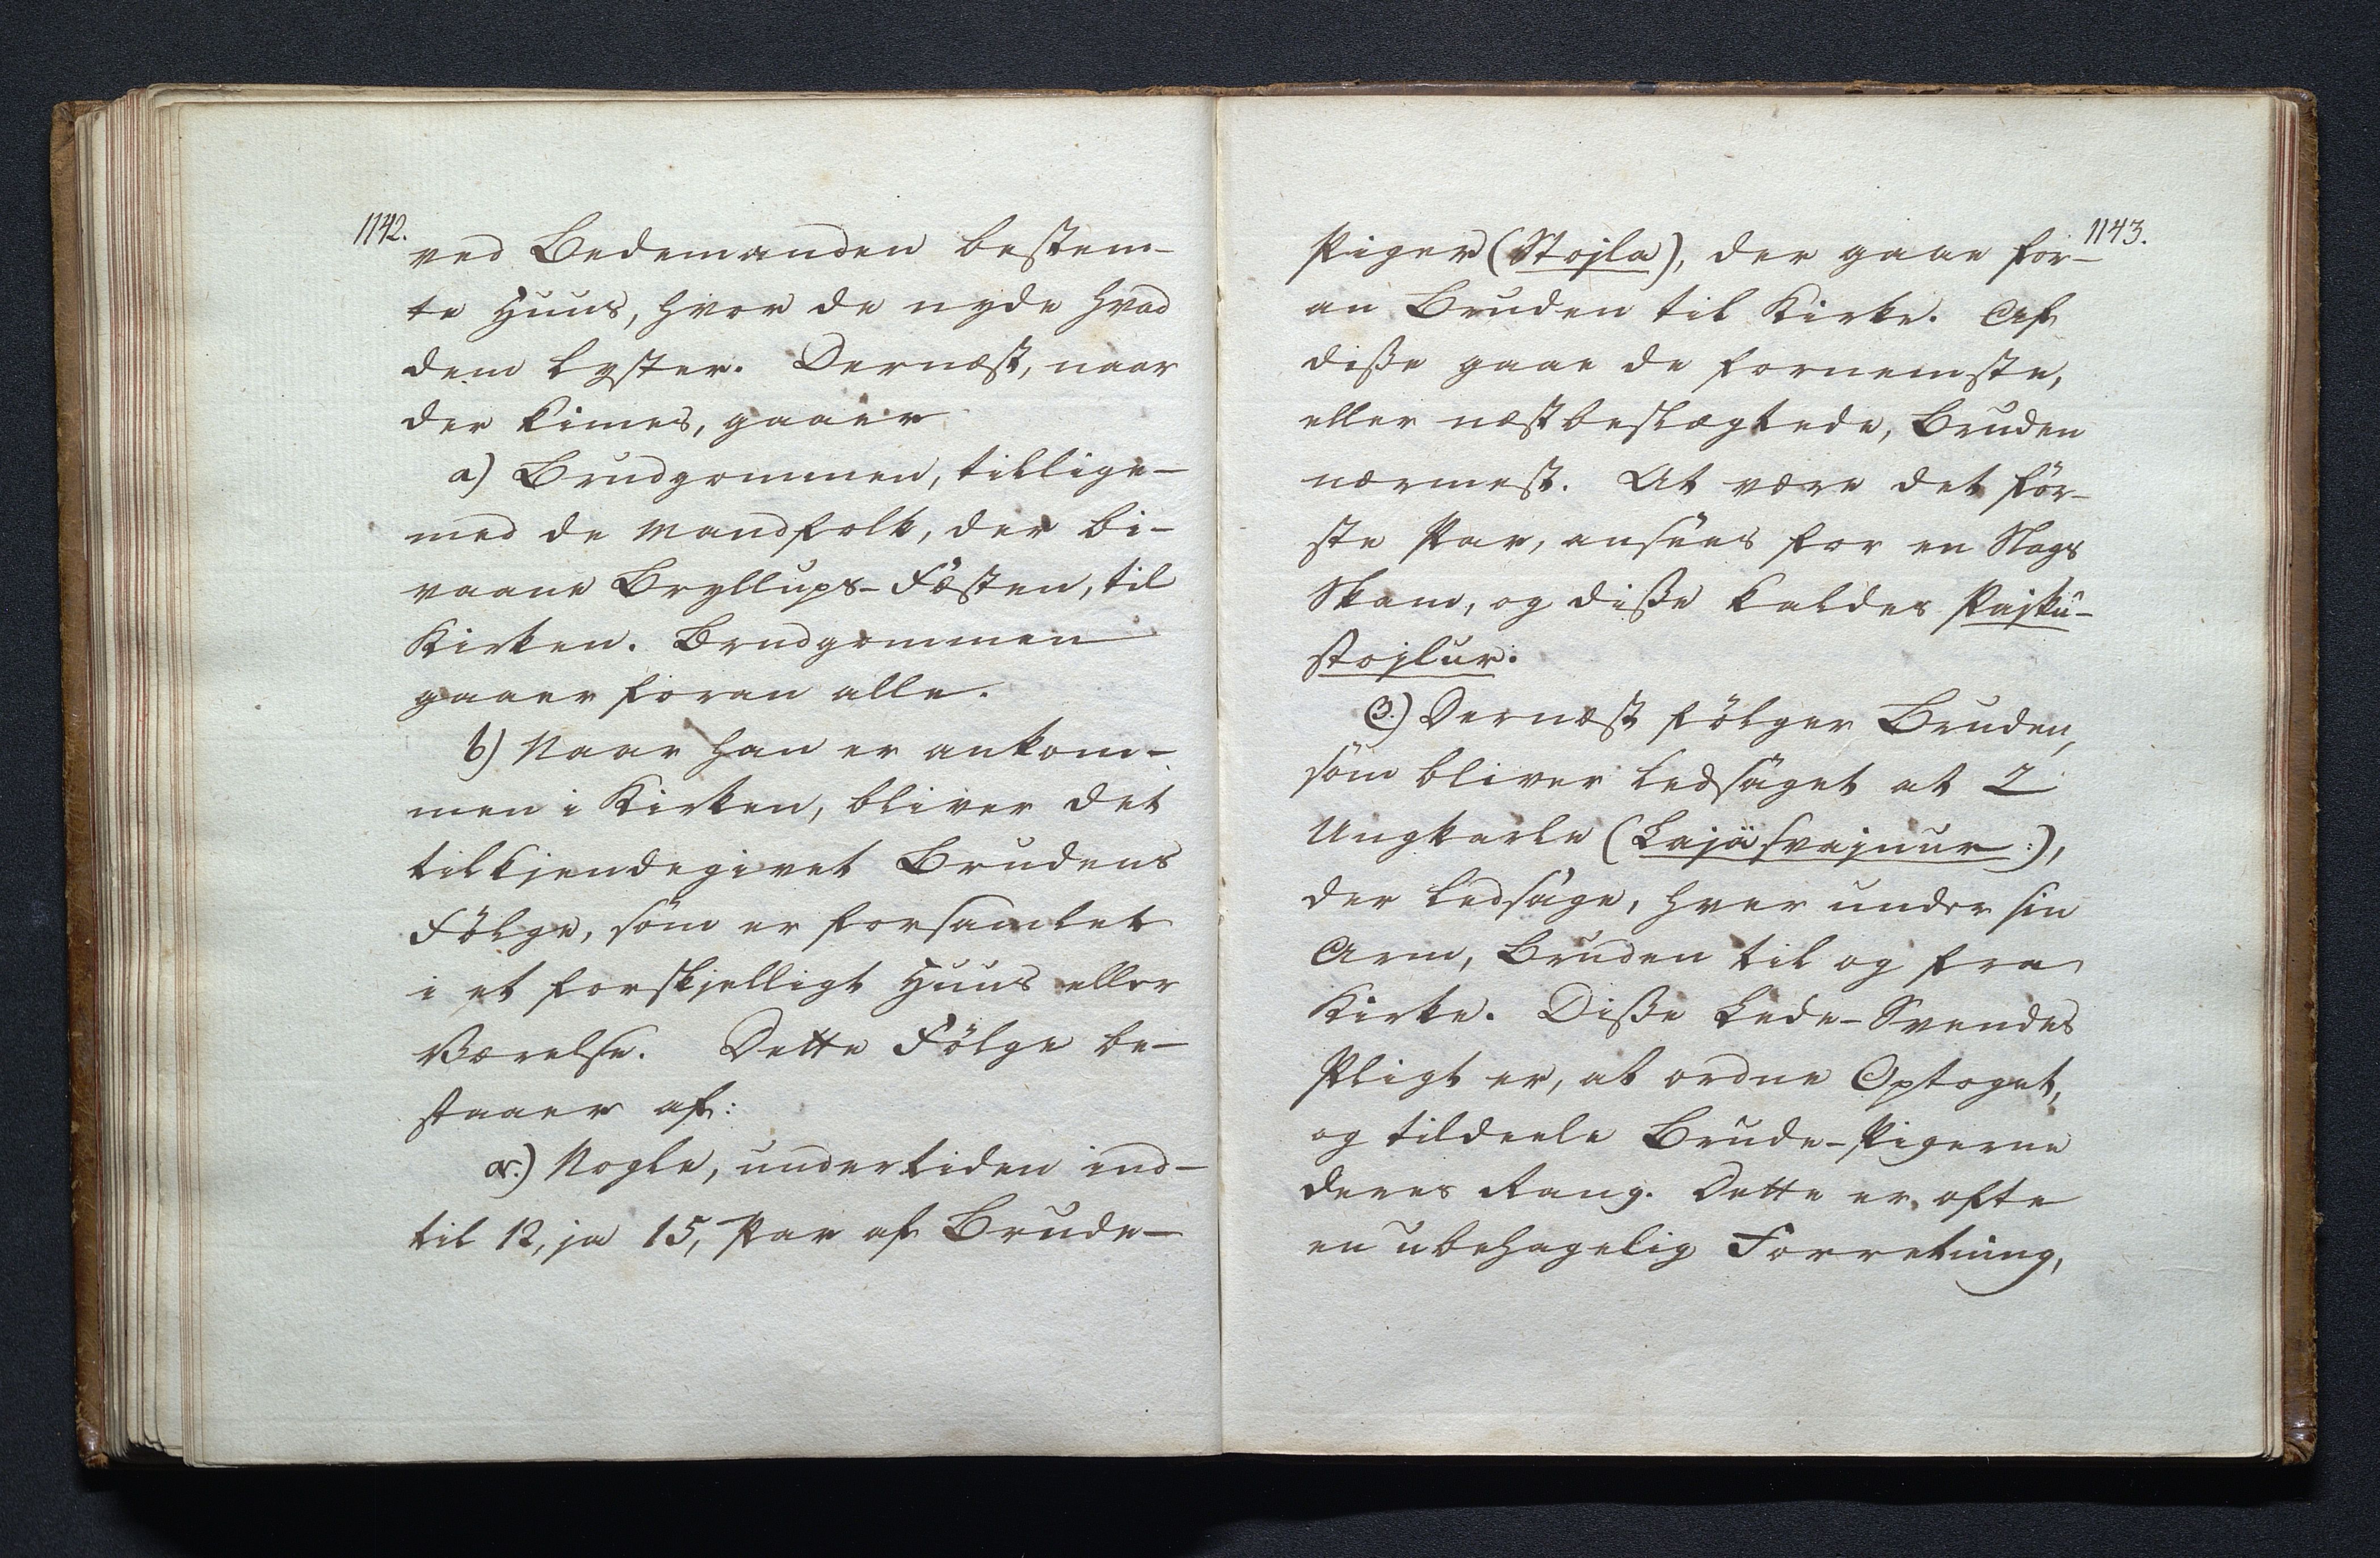 1142.
ved Bedemanden bestem-
te Huus, hvor de nyde hvad
dem lyster. Dernæst, naar
der kimes, gaaer
a) Brudgommen, tillige-
med de Mandfolk, der bi-
vaane Bryllups-Fæsten, til
Kirken. Brudgommen
gaaer foran alle.
b) Naar han er ankom-
men i Kirken, bliver det
tilkjendegivet Brudens
Følge, som er forsamlet
i et forskjelligt Huus eller
Værelse. Dette Følge be-
staaer af:
α.) Nogle, undertiden ind-
til 12, ja 15, Par af Brude-
1143.
Piger (Stojla), der gaae for-
an Bruden til Kirke. Af
disse gaae de fornemste,
eller næstbeslægtede, Bruden
nærmest. At være det för-
ste Par, ansees for en Slags
Skam, og disse kaldes Pajsku-
stojlur.
β.) Dernæst følger Bruden,
som bliver ledsaget at 2
Ungkarle (Lajäsvajnur:),
der ledsage, hver under sin
Arm, Bruden til og fra
Kirke. Disse Lede-Svendes
Pligt er, at ordne Optoget,
og tildeele Brude-Pigerne
deres Rang. Dette er ofte
en ubehagelig Forretning,